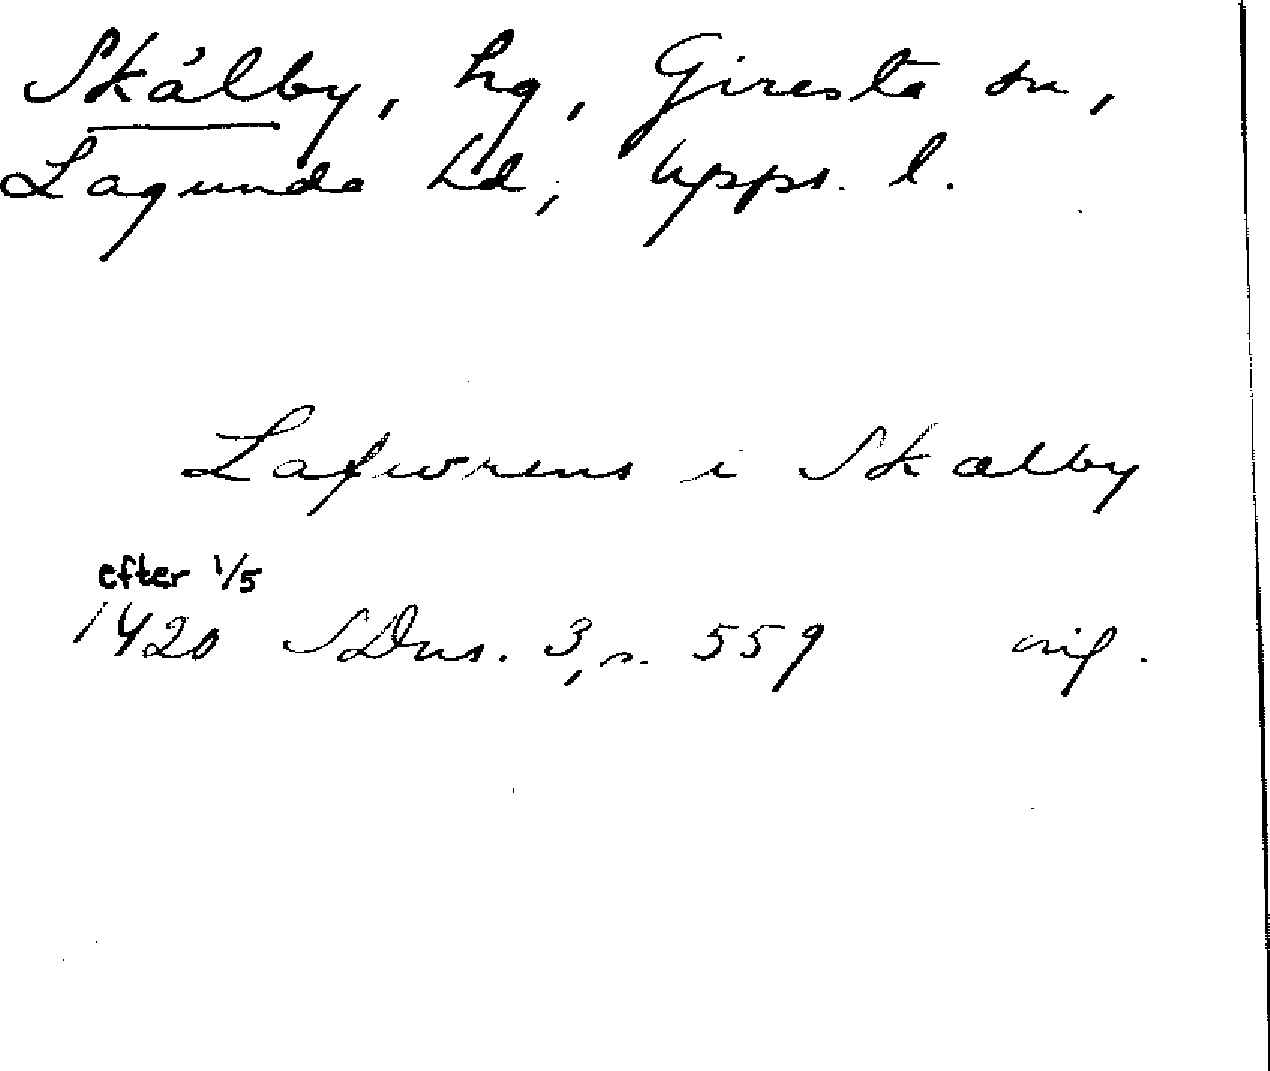 Skålby, hg, Giresta sn,
Lagunda hd, Upps. l.
Lafwrens i Skalby
efter 1/5
1420 SDns. 3, s. 559 orig.